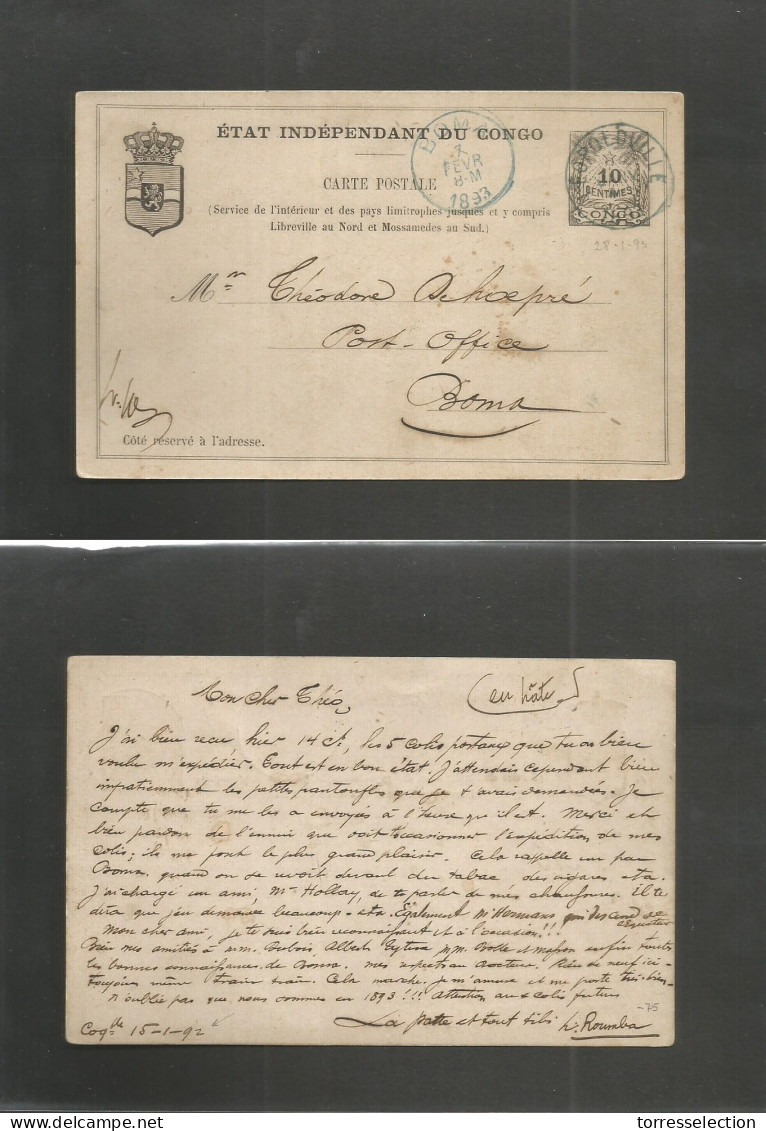 ÉTAT INDÉPENDANT DU CONGO
CARTE POSTALE
(Service de l'intérieur et des pays limitrophes jusques et y compris
Libreville au Nord et Mossamedes au Sud.)
BOMA
7
FÉVR
8-M
1893
LEOPOLDVILLE
10
CENTIMES
CONGO
28-1-93
Mr Théodore
Post-Office
Boma
Côté réservé à l'adresse.
Mon cher Théo,
(en hâte)
J'ai bien reçu hier 14 Ct, les 5 colis postaux que tu as bien
voulu m'expédier. Tout est en bon état. J'attendais cependant bien
impatiemment les petites pantoufles que je t'avais demandées. Je
compte que tu me les a envoyés à l'heure que il est. Merci et
bien pardon de l'ennui que doit t'occasionner l'expédition de mes
colis; ils me font le plus grand plaisir. Cela rappelle un peu
Boma quand on se revoit devant du tabac des cigares eta.
J'ai chargé un ami, Mr Hollay, de te parler de mes chaufoures. Il te
dira que j'en demande beaucoup - eta. Également M. Hermans qui descend de
Equateur
Mon cher ami, je te suis bien reconnaissant et à l'occasion!!!
Bien mes amitiés à MM. Dubois, Albert MM. Bolle et Masson enfin toutes
les bonnes connaissances de Boma. mes respects au docteur. Rien de neuf ici -
toujours même train train. Cela marche. Je m'amuse et me porte très bien -
N'oublie pas que nous sommes en 1893!!! Attention aux colis futurs
-75
La patte et tout tibi h. Roumba
Coqlle 15-1-92
torresselection